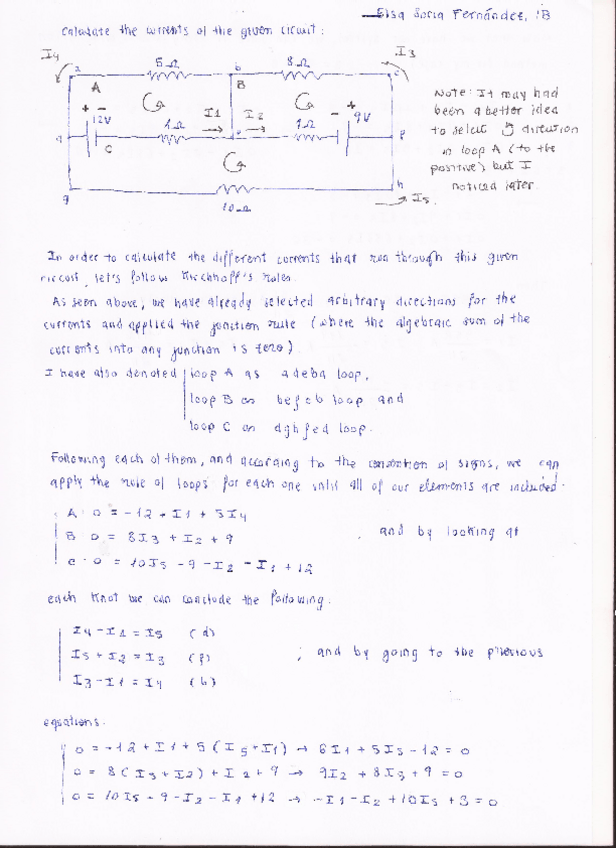 Elsa Soria Fernández, 1B
Calculate the currents of the given circuit:
I4 a 5Ω b 8Ω c I3
A B
+ - - +
12V 1Ω I1 I2 1Ω 9V
d e f
C
g 10Ω h I5
Note: It may had
been a better idea
to select ↺ direction
in loop A (to the
positive) but I
noticed later.
In order to calculate the different currents that run through this given
circuit, let's follow Kirchhoff's rules.
As seen above, we have already selected arbitrary directions for the
currents and applied the junction rule (where the algebraic sum of the
currents into any junction is zero).
I have also denoted loop A as adeba loop,
loop B as befcb loop and
loop C as dghfed loop.
Following each of them, and according to the convention of signs, we can
apply the rule of loops for each one until all of our elements are included.
A: 0 = -12 + I1 + 5I4
B: 0 = 8I3 + I2 + 9 , and by looking at
C: 0 = 10I5 - 9 - I2 - I1 + 12
each knot we can conclude the following.
I4 - I1 = I5 (d)
I5 + I2 = I3 (f) ; and by going to the previous
I3 - I1 = I4 (b)
equations.
0 = -12 + I1 + 5(I5 + I1) → 6I1 + 5I5 - 12 = 0
0 = 8(I5 + I2) + I2 + 9 → 9I2 + 8I5 + 9 = 0
0 = 10I5 - 9 - I2 - I1 + 12 → -I1 - I2 + 10I5 + 3 = 0